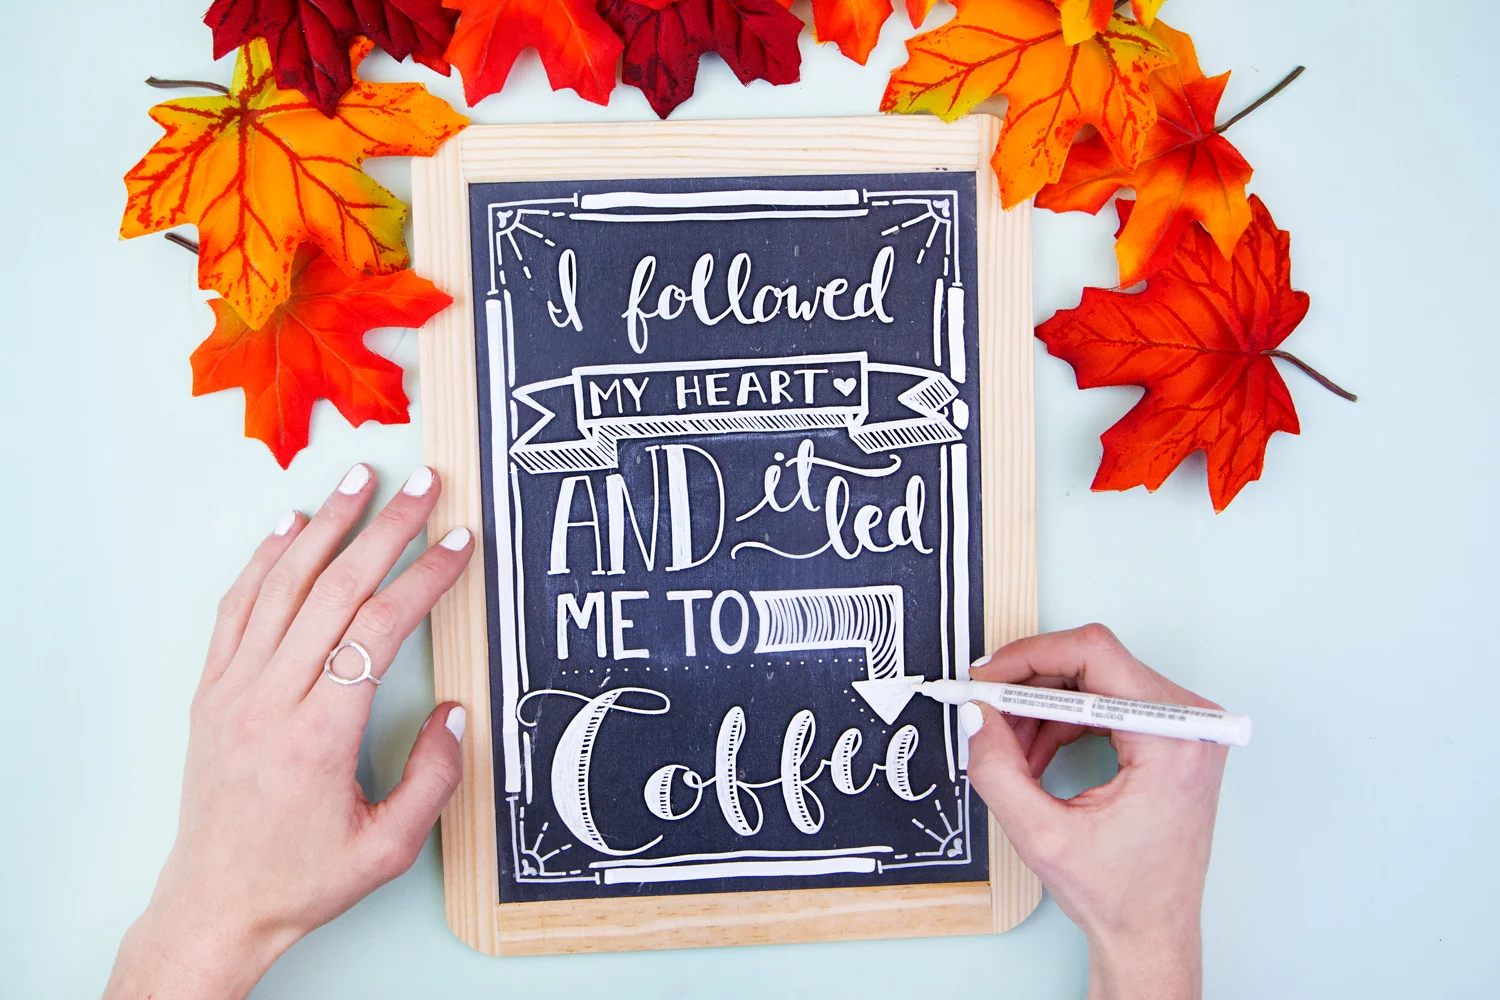 I followed
MY HEART
AND it led
ME TO
Coffee